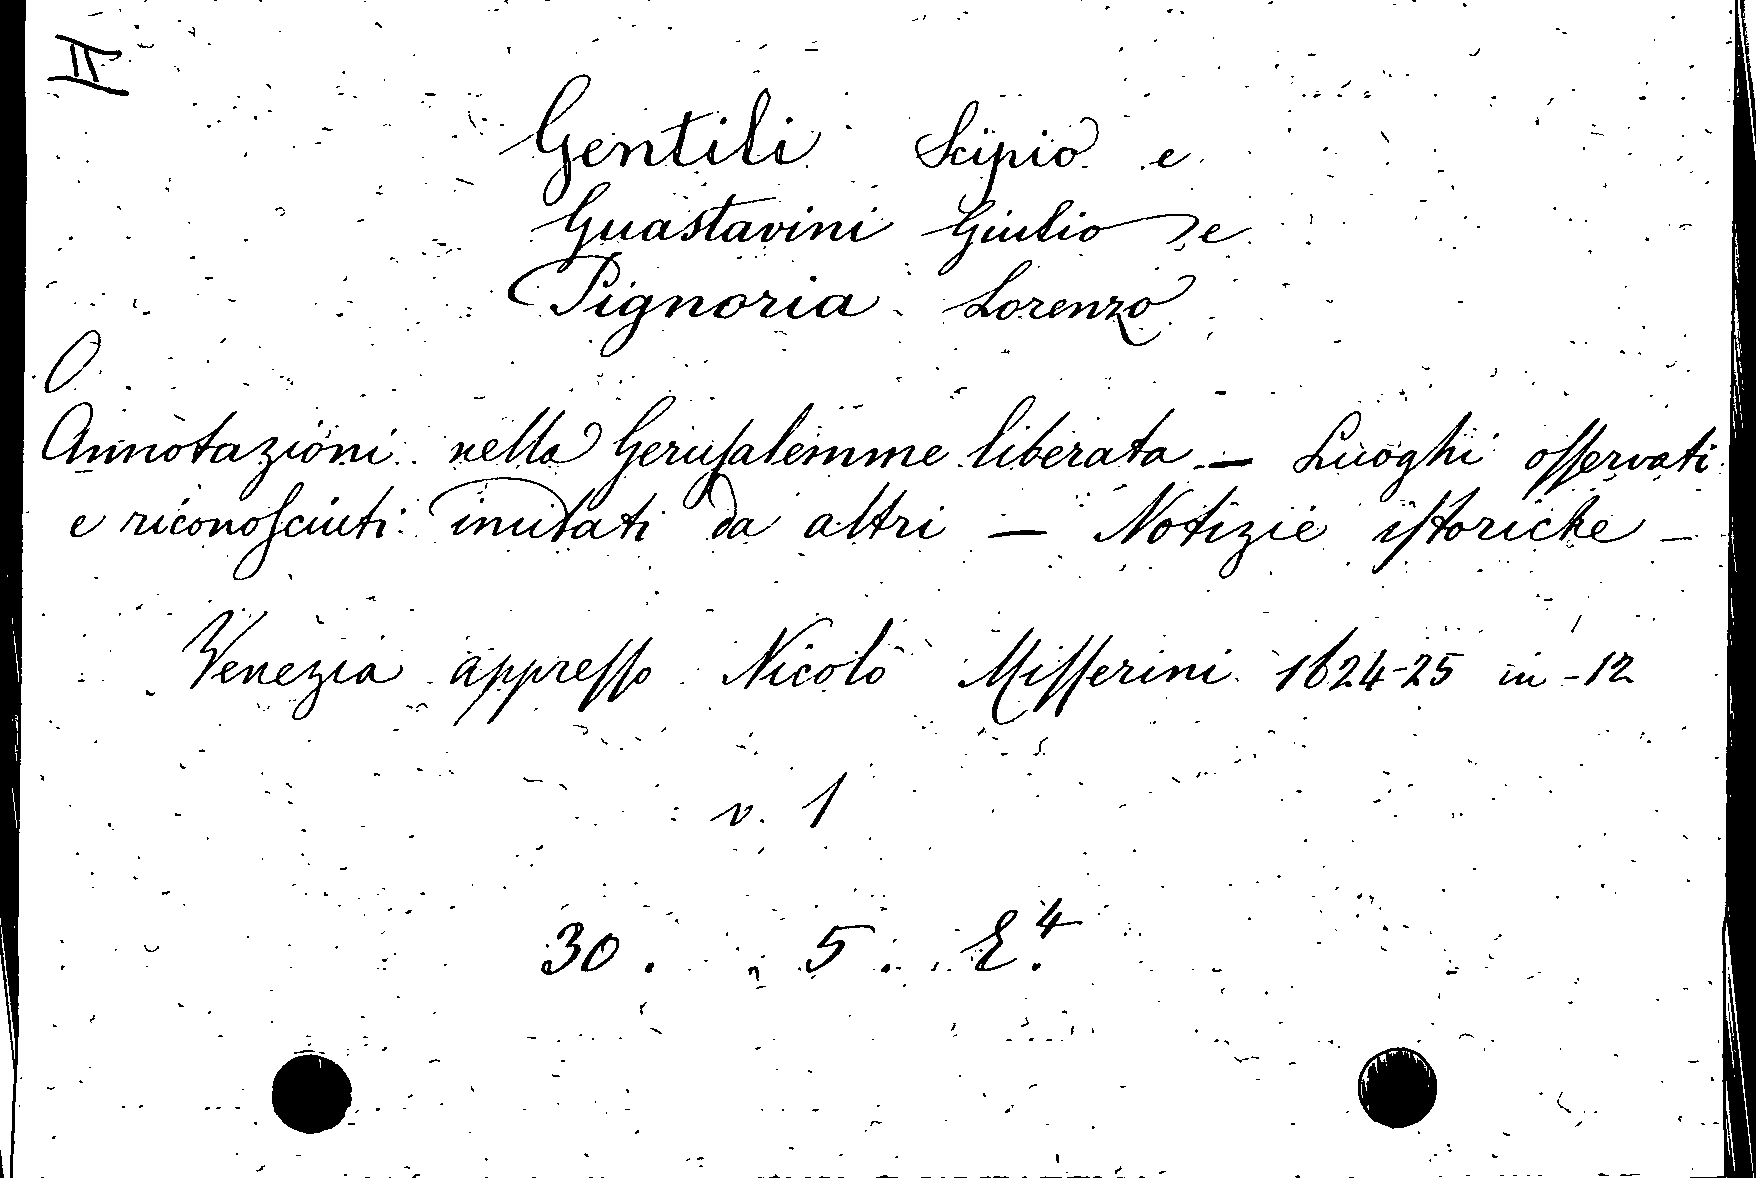 II
Gentili Scipio e
Guastavini Giulio e
Pignoria Lorenzo
Annotazioni nella Gerusalemme liberata — Luoghi osservati
e riconosciuti imitati da altri — Notizie istoriche —
Venezia appresso Nicolò Misserini 1624-25 in-12
v. 1
30. 5. E.4